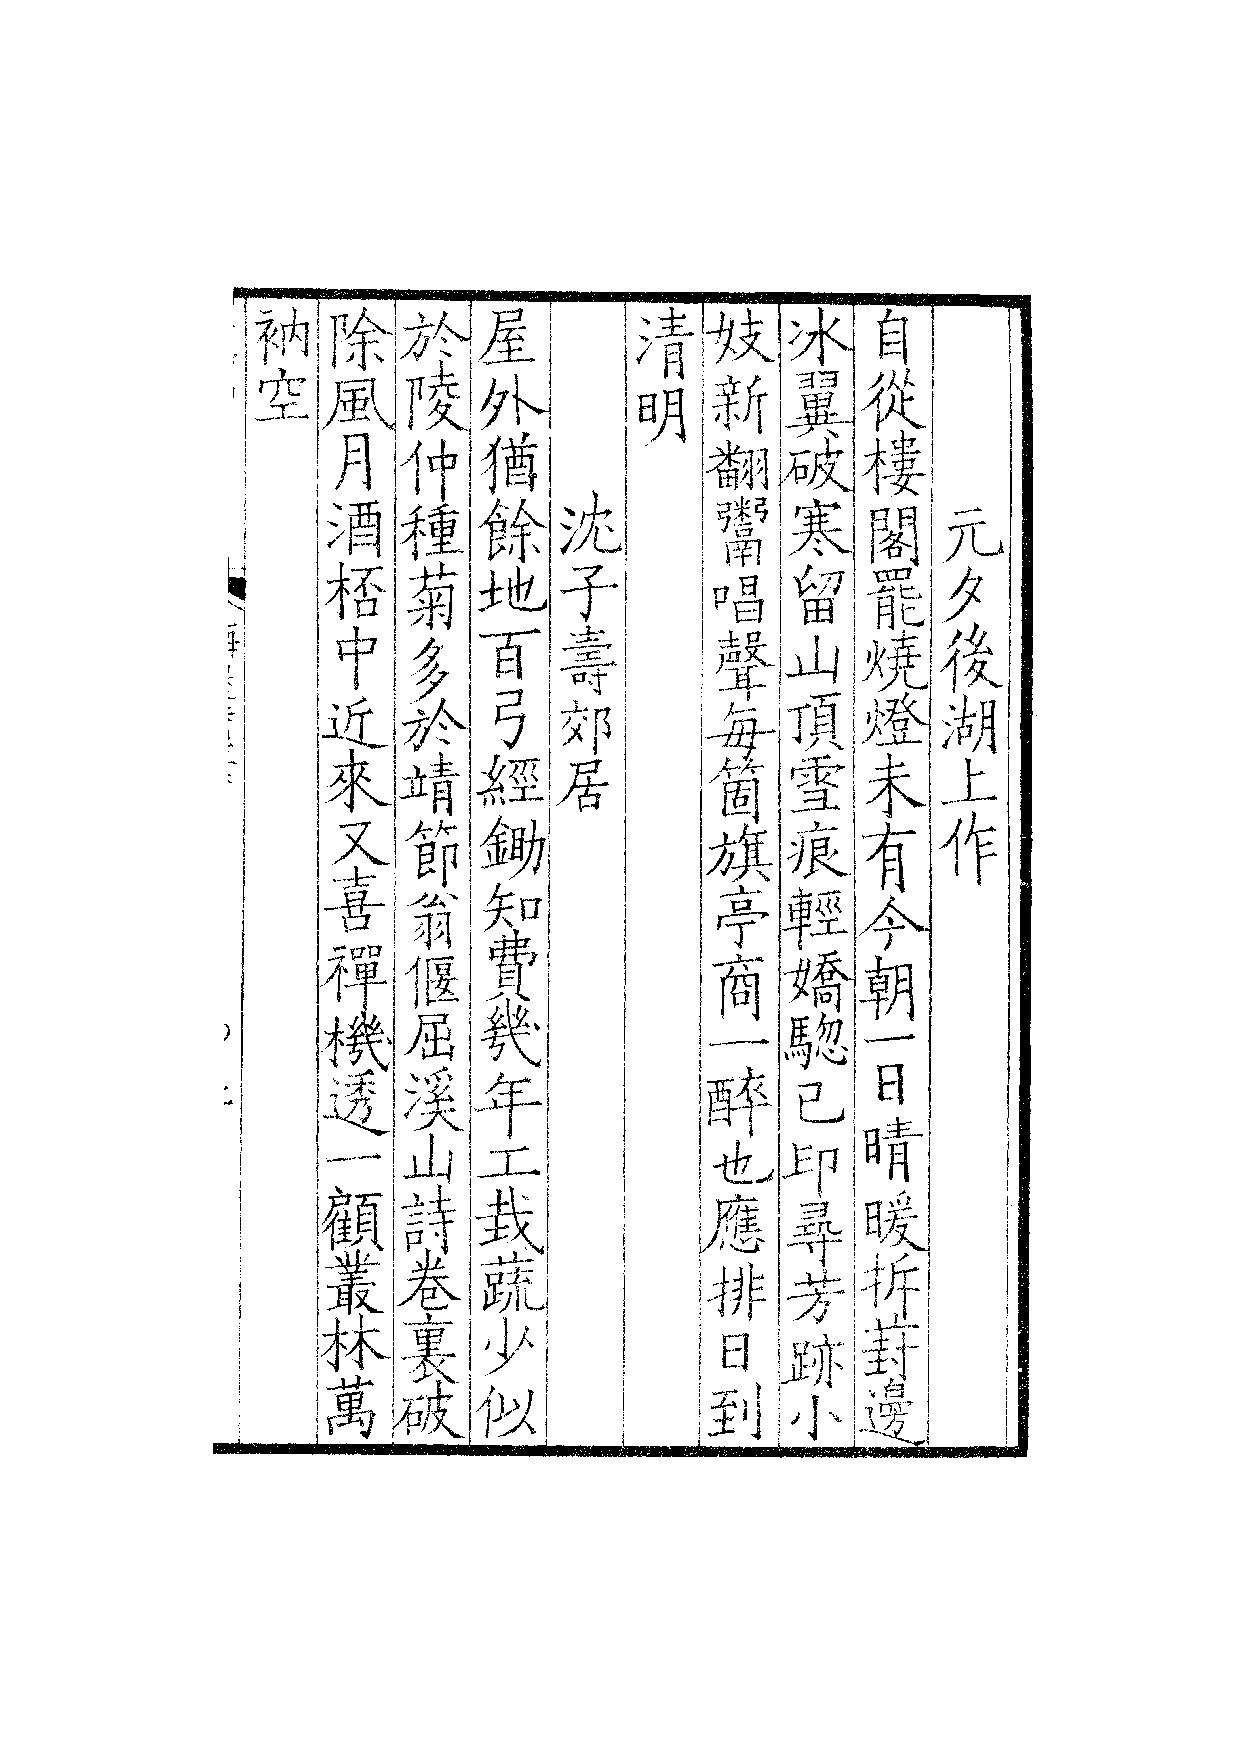 元夕後湖上作
自從樓閣罷燒燈未有今朝一日晴暖拆葑邊
冰翼破寒留山頂雪痕輕嬌驄已印尋芳跡小
妓新翻鬻唱聲每箇旗亭商一醉也應排日到
清明
沈子壽郊居
屋外猶餘地百弓經鋤知費幾年工栽蔬少似
於陵仲種菊多於靖節翁偃屈溪山詩卷裏破
除風月酒桮中近來又喜禪機透一顧叢林萬
衲空